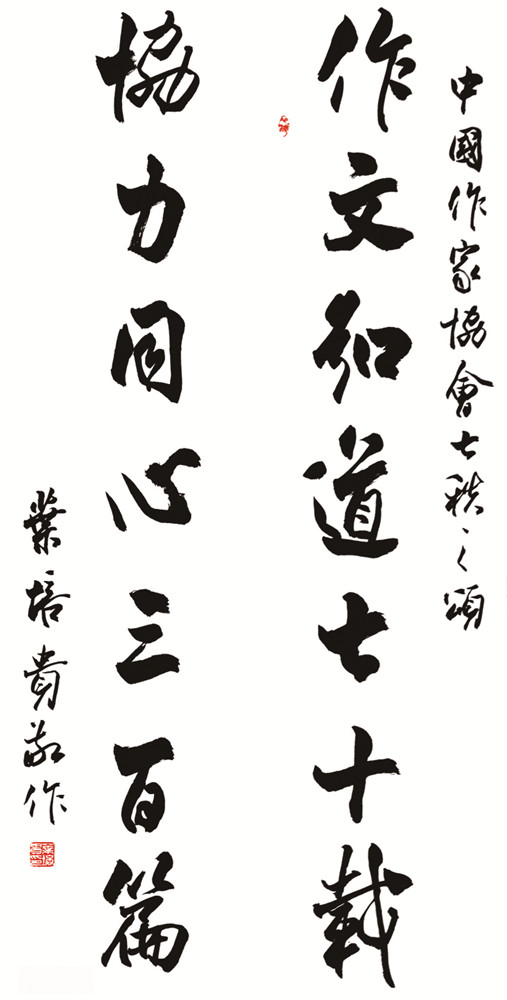 中國作家協會七秩之頌
作文弘道七十載
協力同心三百篇
葉培貴敬作